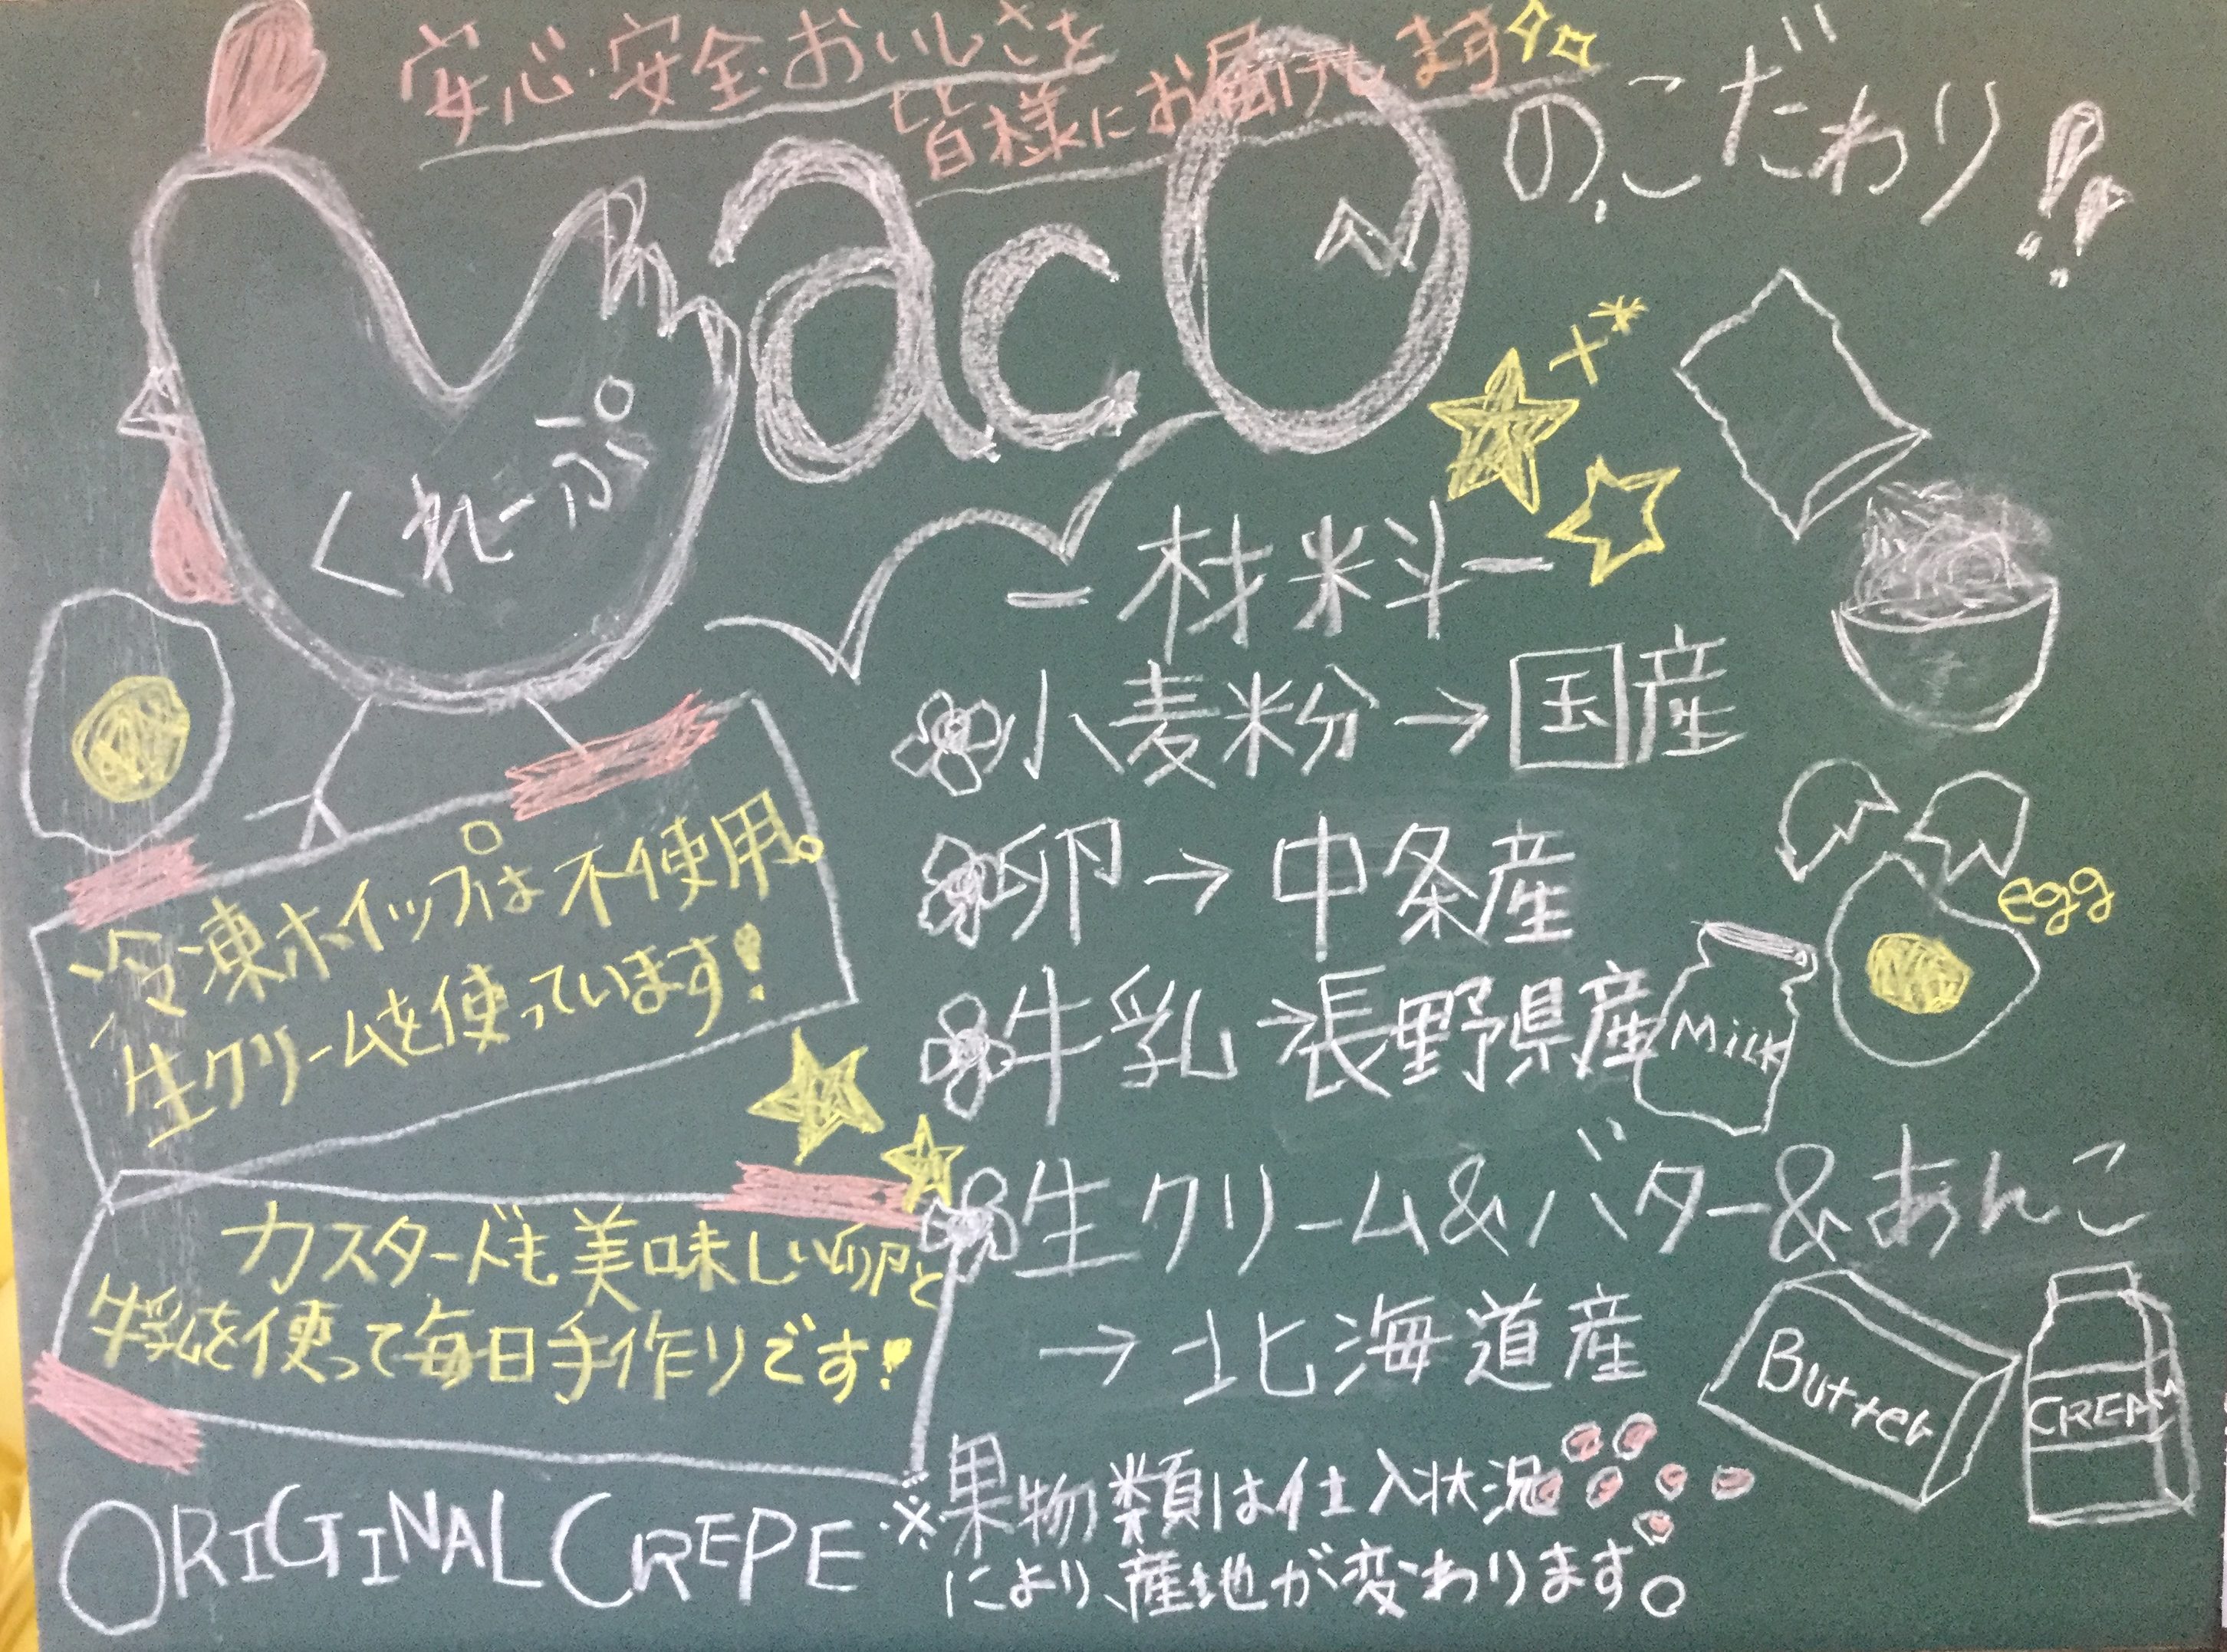 安心・安全・おいしさを
皆様にお届けします
macoのこだわり!!
くれーぷ
ー材料ー
小麦粉→国産
卵→中条産
egg
牛乳→長野県産
Milk
生クリーム&バター&あんこ
→北海道産
Butter
CREAM
※果物類は仕入状況
により、産地が変わります。
冷凍ホイップは不使用。
生クリームを使っています!
カスタードも美味しい卵と
牛乳を使って毎日手作りです!
ORIGINAL CREPE